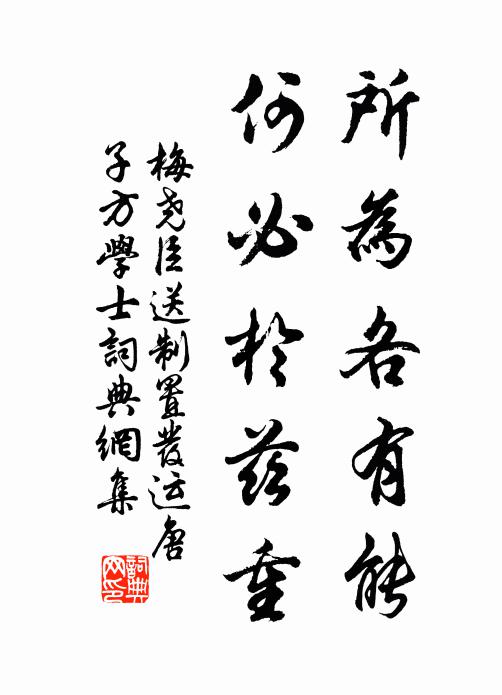 所為各有能
何必於茲重
梅堯臣送制置發运唐
子方學士詞典網集
詞典
网印